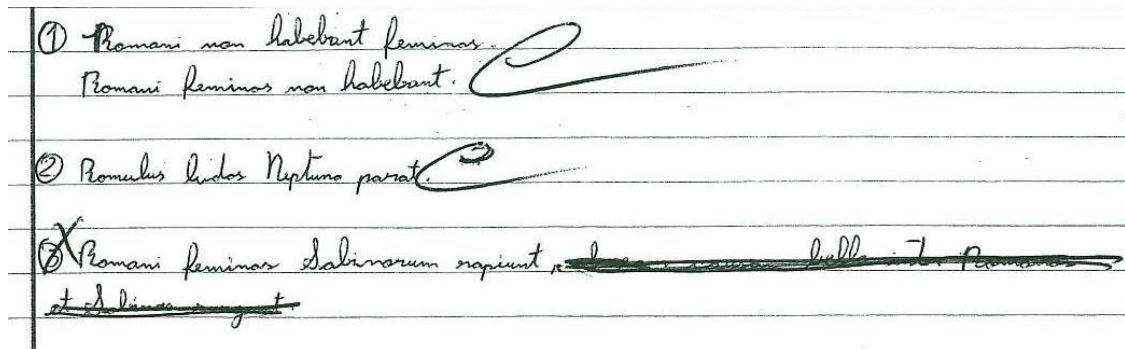 ① Romani non habebant feminas.
Romani feminas non habebant.
② Romulus ludos Neptuno parat.
③ Romani feminas Sabinorum rapiunt
et Sabinos